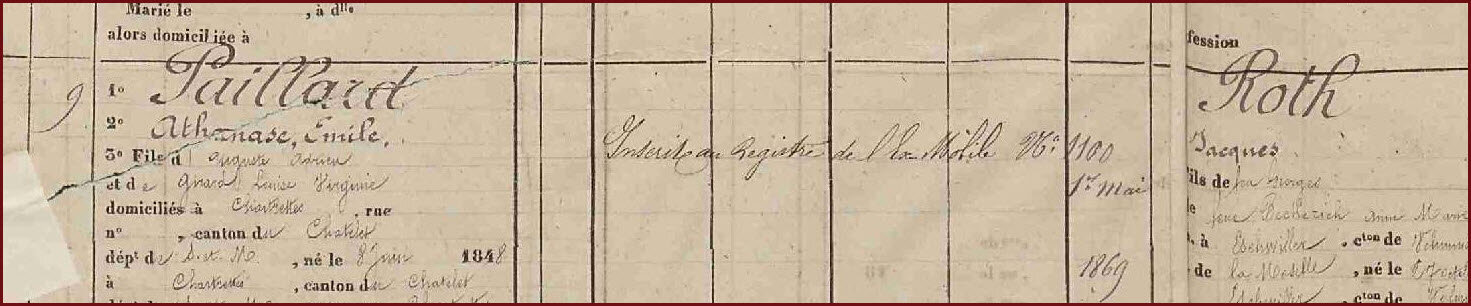 Marié le , à dlle
alors domiciliée à
9
1o Paillard
2o Athanase, Emile.
3o Fils d' Auguste Adrien
et de Girard Louise Virginie
domiciliés à Chartrettes , rue
no , canton du Chatelet
dépt de S. et M. , né le 8 Juin 1848
à Chartrettes , canton du Chatelet
Inscrit au registre de la Mobile No 1100
1er Mai
1869
fession
Roth
Jacques
fils de feu Georges
feue Anne Marie
à Eschwiller , cton de
de la Moselle , né le
cton de